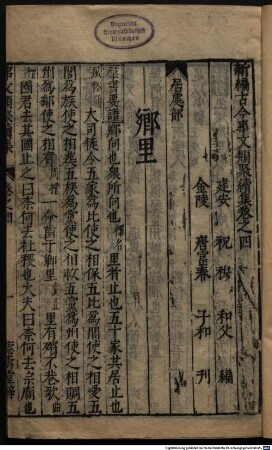 新編古今事文類聚續集卷之四
建安 祝穆 和父 編
金陵 唐富春 子和 刊
居處部
鄉里
羣書要語鄉向也衆所向也釋名里者止也五十家共居止也
風俗通大司徒令五家為比使之相保五比為閭使之相愛五
閭為族使之相葬五族為黨使之相救五黨為州使之相賙五
州為鄉使之相賓周禮 里有殯不巷歌曲
禮國君去其國止之曰奈何去社稷也大夫曰奈何去宗廟也
Bayerische
Staatsbibliothek
München